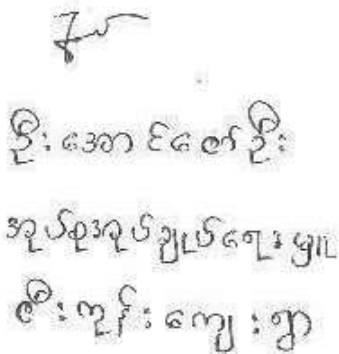 ဦးအောင်ဇော်ဦး
အုပ်စုအုပ်ချုပ်ရေးမှူး
ဇီးကုန်းကျေးရွာ